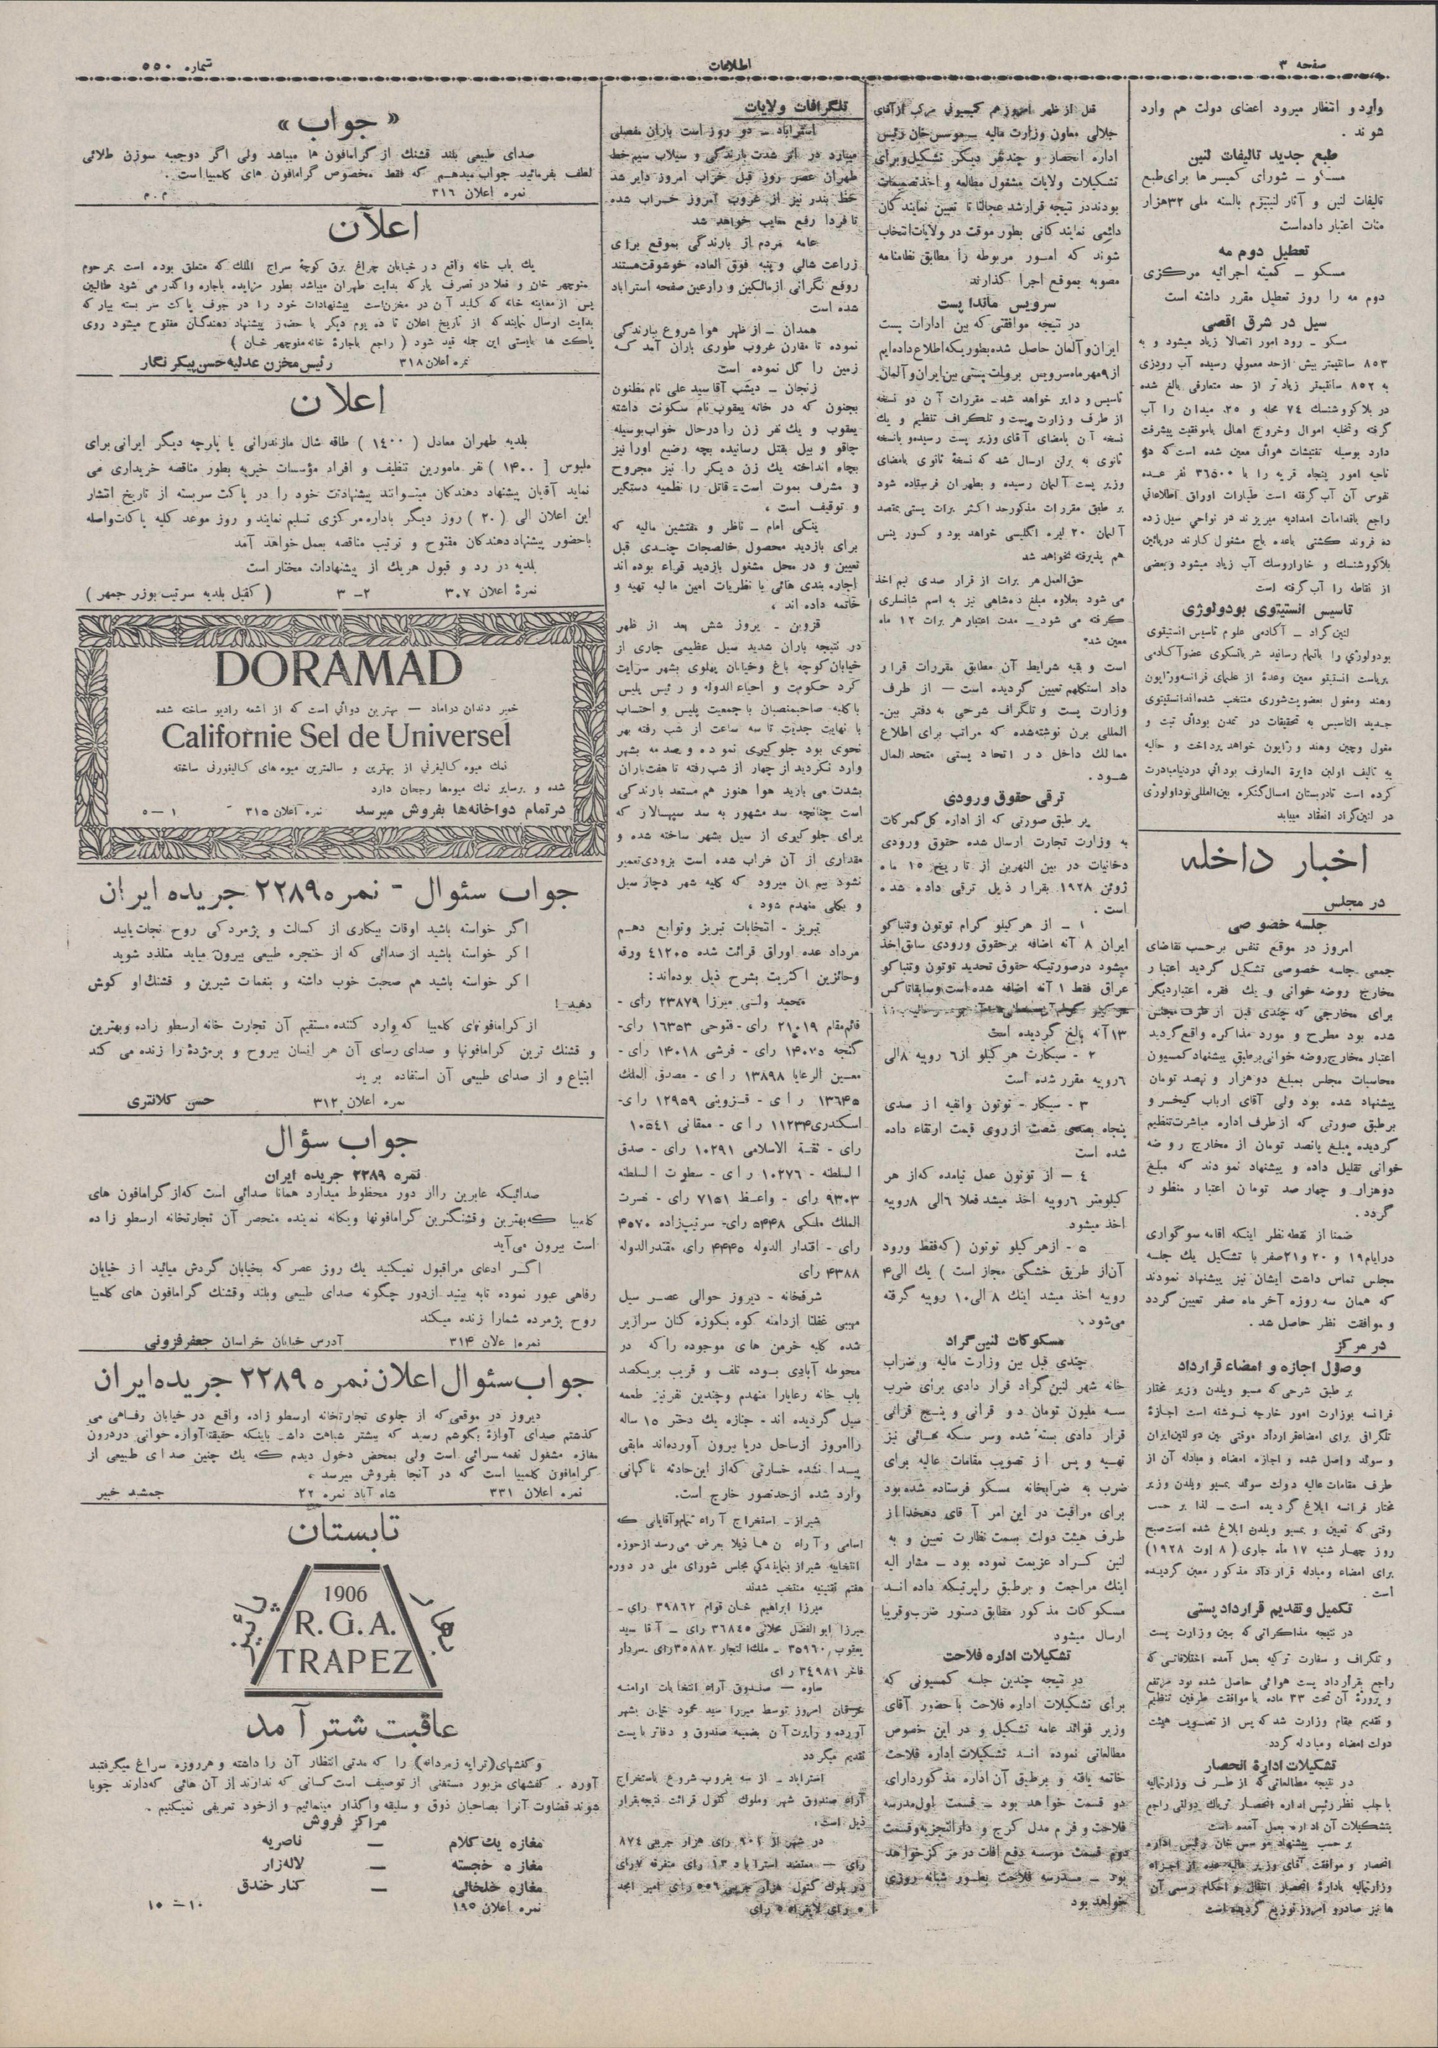 صفحه ۳
اطلاعات
شماره ۵۵۰
وارد و انتظار میرود اعضای دولت هم وارد
شوند .
طبع جدید تالیفات لنین
مسکو – شورای کمیسرها برای طبع
تالیفات لنین و آثار لنینیزم بالسنه ملی ۳۲هزار
منات اعتبار داده‌است
تعطیل دوم مه
مسکو – کمیته اجرائیه مرکزی
دوم مه را روز تعطیل مقرر داشته است
سیل در شرق اقصی
مسکو – رود امور اتصالا زیاد میشود و به
۸۵۳ سانتیمتر بیش ازحد معمولی رسیده آب رودزی
به ۸۵۲ سانتیمتر زیادتر از حد متعارفی بالغ شده
در بلاکوشنسك ۷۴ محله و ۲۵ میدان را آب
گرفته وتخلیه اموال وخروج اهالی باموفقیت پیشرفت
دارد بوسیله تفتیشات هوائی معین شده است که در
ناحیه امور پنجاه قریه را با ۳۶۵۰۰ نفر عده
نفوس آن آب گرفته است طیارات اوراق اطلاعاتی
راجع باقدامات امدادیه میریزند در نواحی سیل زده
ده فروند کشتی باعده باج مشغول کارند دربائین
بلاکوشنسك و خاباروسك آب زیاد میشود وبعضی
از نقاط را آب گرفته است
تاسیس انستیتوی بودولوژی
لنین گراد – آکادمی علوم تاسیس انستیتوی
بودولوژی را باتمام رسانید شرباتسکوی عضو آکادمی
بریاست انستیتو معین وعدهٔ از علمای فرانسه‌وژاپون
وهند ومغول بعضویت‌شوری منتخب شده‌اند‌انستیتوی
جدید التاسیس به تحقیقات در تمدن بودائی تبت و
مغول وچین وهند وژاپون خواهد پرداخت و حالیه
به تالیف اولین دایرة المعارف بودائی دردنیامبادرت
کرده است تادربستان امسال‌کنگره بین‌المللی‌بودولوژی
در لنین‌گراد انعقاد میباید
اخبار داخله
در مجلس
جلسه خصوصی
امروز در موقع تنفس برحسب تقاضای
جمعی جلسه خصوصی تشکیل گردید اعتبار
مخارج روضه خوانی و یك فقره اعتباردیگر
برای مخارجی که چندی قبل از طرف مجلس
شده بود مطرح و مورد مذاکره واقع‌گردید
اعتبار مخارج‌روضه خوانی‌برطبق پیشنهاد کمسیون
محاسبات مجلس بمبلغ دوهزار و نهصد تومان
پیشنهاد شده بود ولی آقای ارباب کیخسرو
برطبق صورتی که ازطرف اداره مباشرت‌تنظیم
گردیده مبلغ پانصد تومان از مخارج روضه
خوانی تقلیل داده و پیشنهاد نمودند که مبلغ
دوهزار و چهارصد تومان اعتبار منظور
گردد .
ضمنا از نقطه نظر اینکه اقامه سوگواری
درایام۱۹ و ۲۰ و۲۱صفر با تشکیل یك جلسه
مجلس تماس داشت ایشان نیز پیشنهاد نمودند
که همان سه روزه آخر ماه صفر تعیین گردد
و موافقت نظر حاصل شد .
در مرکز
وصول اجازه و امضاء قرارداد
بر طبق شرحی که مسیو ویلدن وزیر مختار
فرانسه بوزارت امور خارجه نوشته است اجازهٔ
تلگرافی برای امضاءقرارداد موقتی بین دولتین‌ایران
و سوئد واصل شده و اجازه امضاء و مبادله آن از
طرف مقامات عالیه دولت سوئد بمسیو ویلدن وزیر
مختار فرانسه ابلاغ گردیده است – لذا بر حسب
وقتی که تعیین و بمسیو ویلدن ابلاغ شده است‌صبح
روز چهار شنبه ۱۷ ماه جاری (۸ اوت ۱۹۲۸)
برای امضاء ومبادله قرار داد مذکور معین گردیده
است .
تکمیل و تقدیم قرارداد پستی
در نتیجه مذاکراتی که بین وزارت پست
و تلگراف و سفارت ترکیه بعمل آمده اختلافاتی که
راجع بقرارداد پست هوائی حاصل شده بود مرتفع
و پروژهٔ آن تحت ۳۳ ماده با موافقت طرفین تنظیم
و تقدیم مقام وزارت شد که پس از تصویب هیئت
دولت امضاء ومبادله گردد.
تشکیلات ادارهٔ انحصار
در نتیجه مطالعاتی که از طرف وزارتمالیه
با جلب نظر رئیس اداره انحصار تریاك دولتی راجع
بتشکیلات آن اداره بعمل آمده است
بر حسب پیشنهاد موسس خان رئیس اداره
انحصار و موافقت آقای وزیر مالیه عده از اجزاء
وزارتمالیه بادارهٔ انحصار انتقال و احکام رسمی آن
ها نیز صادرو امروز توزیع گردیده‌است
قبل از ظهر امروزهم کمیسیونی مرکب ازآقای
جلالی معاون وزارت مالیه – موسس‌خان رئیس
اداره انحصار و چندنفر دیگر تشکیل‌وبرای
تشکیلات ولایات مشغول مطالعه و اخذتصمیمات
بودنددر نتیجه قرارشد عجالتا تا تعیین نمایندگان
دائمی نمایندگانی بطور موقت در ولایات‌انتخاب
شوند که امور مربوطه را مطابق نظامنامه
مصوبه بموقع اجرا گذارند
سرویس ماندا پست
در نتیجه موافقتی که بین ادارات پست
ایران‌و آلمان حاصل شده‌بطوریکه‌اطلاع داده‌ایم
از۹مهرماه‌سرویس بروات‌پستی بین‌ایران‌و آلمان
تاسیس و دایر خواهد شد– مقررات آن دو نسخه
از طرف وزارت پست و تلگراف تنظیم و یك
نسخه آن بامضای آقای وزیر پست رسیده‌و بانسخه
ثانوی به برلن ارسال شد که نسخهٔ ثانوی بامضای
وزیر پست آلمان رسیده و بطهران فرستاده شود
بر طبق مقررات مذکورحد اکثر برات پستی بمقصد
آلمان ۲۰ لیره انگلیسی خواهد بود و کسور پنس
هم پذیرفته نخواهد شد
حق‌العمل هر برات از قرار صدی نیم اخذ
می شود بعلاوه مبلغ ده‌شاهی نیز به اسم شانسلری
گرفته می شود – مدت اعتبار هر برات ۱۲ ماه
معین شده
است و بقیه شرایط آن مطابق مقررات قرار
داد استکلهم تعیین گردیده است – از طرف
وزارت پست و تلگراف شرحی به دفتر بین-
المللی برن نوشته‌شده که مراتب برای اطلاع
ممالك داخل در اتحاد پستی متحدالمال
شود .
ترقی حقوق ورودی
بر طبق صورتی که از اداره کل‌گمرکات
به وزارت تجارت ارسال شده حقوق ورودی
دخانیات در بین النهرین از تاریخ ۱۵ ماه
ژوئن ۱۹۲۸ بقرار ذیل ترقی داده شده
است .
۱ – از هرکیلو گرام توتون وتنباکو
ایران ۸ آنه اضافه برحقوق ورودی سابق‌اخذ
میشود درصورتیکه حقوق تحدید توتون وتنباکو
عراق فقط ۱ آنه اضافه شده است‌وسابقاتاکس
۱۳آنه بالغ گردیده است
۲ - سیکارت هرکیلو از۶ روپیه ۸الی
۶روپیه مقرر شده است
۳ - سیکار - توتون وانفیه از صدی
پنجاه بصدی شصت ازروی قیمت ارتقاء داده
شده است
۴ – از توتون عمل نیامده که‌از هر
کیلومتر ۶روپیه اخذ میشد فعلا ۶الی ۸روپیه
اخذ میشود.
۵ - ازهرکیلو توتون (که‌فقط ورود
آن‌از طریق خشکی مجاز است ) یك الی۴
روپیه اخذ میشد اینك ۸ الی۱۰ روپیه گرفته
می‌شود .
مسکوکات لنین‌گراد
چندی قبل بین وزارت مالیه و ضراب
خانه شهر لنین‌گراد قرار دادی برای ضرب
سه ملیون تومان دو قرانی و پنج قرانی
قرار دادی بسته شده وسر سکه هائی نیز
تهیه و پس از تصویب مقامات عالیه برای
ضرب به ضرابخانه مسکو فرستاده شده‌بود
برای مراقبت در این امر آقای دهخدا از
طرف هیئت دولت بسمت نظارت تعیین و به
لنین گراد عزیمت نموده بود – مشار الیه
اینك مراجعت و برطبق راپرتیکه داده اند
مسکوکات مذکور مطابق دستور ضرب‌وقریبا
ارسال میشود
تشکیلات اداره فلاحت
در نتیجه چندین جلسه کمسیونی که
برای تشکیلات اداره فلاحت با حضور آقای
وزیر فوائد عامه تشکیل و در این خصوص
مطالعاتی نموده اند تشکیلات اداره فلاحت
خاتمه یافته و برطبق آن اداره مذکوردارای
دو قسمت خواهد بود – قسمت اول‌مدرسه
فلاحت و فرم مدل کرج و دارالتجزیه‌وقسمت
دوم قسمت موسسه دفع آفات در مرکزخواهد
بود – مدرسه فلاحت بطور شبانه روزی
خواهد بود
تلگرافات ولایات
استراباد – دو روز است باران مفصلی
میبارد در اثر شدت بارندگی و سیلاب سیم‌خط
طهران عصر روز قبل خراب امروز دایر شد
خط بندر نیز از غروب امروز خراب شده
تا فردا رفع معایب خواهد شد
عامه مردم از بارندگی بموقع برای
زراعت شالی و پنبه فوق العاده خوشوقت‌هستند
و رفع نگرانی ازمالکین و زارعین صفحه استراباد
شده است
همدان – از ظهر هوا شروع ببارندگی
نموده تا مقارن غروب طوری باران آمد که
زمین را گل نموده است
زنجان – دیشب آقا سید علی نام مظنون
بجنون که در خانه یعقوب نام سکونت داشته
یعقوب و یك نفر زن را درحال خواب‌بوسیله
چاقو و بیل بقتل رسانیده بچه رضیع اورا نیز
بچاه انداخته یك زن دیگر را نیز مجروح
و مشرف بموت است. قاتل را نظمیه دستگیر
و توقیف است .
ینکی امام – ناظر و مفتشین مالیه که
برای بازدید محصول خالصجات چندی قبل
تعیین و در محل مشغول بازدید قراء بوده اند
اجاره بندی هائی با نظریات امین مالیه تهیه و
خاتمه داده اند .
قزوین – پریروز شش بعد از ظهر
در نتیجه باران شدید سیل عظیمی جاری از
خیابان‌کوچه باغ وخیابان پهلوی بشهر سرایت
کرد حکومت و احیاء الدوله و رئیس پلیس
با کلیه صاحبمنصبان با جمعیت پلیس و احتساب
با نهایت جدیت تا سه ساعت از شب رفته بهر
نحوی بود جلوگیری نموده و صدمه بشهر
وارد نگردید از چهار از شب رفته تا هفت‌باران
بشدت می بارید هوا هنوز هم مستعد بارندگی
است چنانچه سد مشهور به سد سپهسالار که
برای جلوگیری از سیل بشهر ساخته شده و
مقداری از آن خراب شده است بزودی‌تعمیر
نشود بیم آن میرود که کلیه شهر دچار سیل
و بکلی منهدم شود .
تبریز - انتخابات تبریز وتوابع دهم
مرداد عده اوراق قرائت شده ۴۱۲۰۵ ورقه
وحائزین اکثریت بشرح ذیل بوده‌اند:
محمد ولی میرزا ۲۳۸۷۹ رای -
قائم‌مقام ۲۱۰۱۹ رای- فتوحی ۱۶۳۵۳ رای-
گنجه ۱۴۰۷۵ رای - فرشی ۱۴۰۱۸ رای -
معین الرعایا ۱۳۸۹۸ رای - مصدق الملك
۱۳۶۴۵ رای - قزوینی ۱۲۹۵۹ رای-
اسکندری۱۱۲۳۴ رای - ممقانی ۱۰۵۴۱
رای - ثقة الاسلامی ۱۰۲۹۱ رای - صدق
السلطنه - ۱۰۲۷۶ رای - سطوت السلطنه
۹۳۰۳ رای - واعظ ۷۱۵۱ رای - نصرت
الملك ملکی ۵۴۴۸ رای- سرتیپ‌زاده ۴۵۷۰
رای - اقتدار الدوله ۴۴۴۵ رای مقتدرالدوله
۴۳۸۸ رای
شرفخانه - دیروز حوالی عصر سیل
مهیبی غفلتا ازدامنه کوه بکوزه کنان سرازیر
شده کلیه خرمن های موجوده راکه در
محوطه آبادی بوده تلف و قریب بریکصد
باب خانه رعایارا منهدم وچندین نفرنیز طعمه
سیل گردیده اند - جنازه یك دختر ۱۵ ساله
راامروز ازساحل دریا بیرون آورده‌اند مابقی
پیدا نشده خسارتی که‌از این‌حادثه ناگهانی
وارد شده ازحدتصور خارج است.
شیراز – استخراج آراء تمام‌و‌آقایانی که
اسامی و آراء آن ها ذیلا بعرض می رسد ازحوزه
انتخابیه شیراز بنمایندگی مجلس شورای ملی در دوره
هفتم تقنینیه منتخب شدند
میرزا ابراهیم خان قوام ۳۹۸۶۲ رای -
میرزا ابو الفضل محلاتی ۳۶۸۴۵ رای – آقا سید
یعقوب ۳۵۹۶۰ – ملك‌التجار ۳۵۸۸۲رای‌ سردار
فاخر ۳۴۹۸۱ رای
ساوه – صندوق آراء انتخابات ارامنه
خرقان امروز توسط میرزا سید محمود خان بشهر
آورده و راپرت آن بضمیه صندوق و دفاتر بایست
تقدیم میگردد
استراباد – از سه بغروب شروع باستخراج
آراء صندوق شهر وملوك کتول قرائت نتیجه‌بقرار
ذیل است.
در شهر از ۹۰۲ رای هزار جریبی ۸۷۴
رای – معتضد استراباد ۱۳ رای متفرقه ۷رای
در بلوك کتول هزار جریبی ۵۵۶ رای امیر امجد
۵ رای لایقراء ۵ رای
«جواب»
صدای طبیعی بلند قشنك از گرامافون ها میباشد ولی اگر دوجعبه سوزن طلائی
لطف بفرمائید جواب میدهم که فقط مخصوص گرامافون های کلمبیا است .
نمره اعلان ۳۱۶
م.م
اعلان
یك باب خانه واقع در خیابان چراغ برق کوچهٔ سراج الملك که متعلق بوده است بمرحوم
منوچهر خان و فعلا در تصرف یارکه بدایت طهران میباشد بطور مزایده باجاره واگذر می شود طالبین
پس ازمعاینه خانه که کلید آن در مخزن‌است پیشنهادات خود را در جوف پاکت سر بسته بپارکه
بدایت ارسال نمایند که از تاریخ اعلان تا ده یوم دیگر با حضور پیشنهاد دهندگان مفتوح میشود روی
پاکت ها بایستی این جمله قید شود ( راجع باجارهٔ خانه منوچهر خان )
نمره اعلان ۳۱۸
رئیس مخزن عدلیه حسن پیکر نگار
اعلان
بلدیه طهران معادل ( ۱۴۰۰ ) طاقه شال مازندرانی یا پارچه دیگر ایرانی برای
ملبوس [ ۱۴۰۰ ) نفر مامورین تنظیف و افراد مؤسسات خیریه بطور مناقصه خریداری می
نماید آقایان پیشنهاد دهندکان میتوانند پیشنهادت خود را در پاکت سربسته از تاریخ انتشار
این اعلان الی (۲۰ ) روز دیگر باداره مرکزی تسلیم نمایند و روز موعد کلیه پاکات‌واصله
باحضور پیشنهاد دهندکان مفتوح و ترتیب مناقصه بعمل خواهد آمد
بلدیه در رد و قبول هریك از پیشنهادات مختار است
نمرهٔ اعلان ۳۰۷
۲–۳
( کفیل بلدیه سرتیپ بوزر جمهر )
DORAMAD
خمیر دندان دراماد — بهترین دوائی است که از اشعه رادیو ساخته شده
Californie Sel de Universel
نمك میوه کالیفرنی از بهترین و سالمترین میوه های کالیفورنی ساخته
شده و برسایر نمك میوه‌ها رجحان دارد
در تمام دواخانه‌ها بفروش میرسد
نمره اعلان ۳۱۵
۱ – ۵
جواب سئوال - نمره ۲۲۸۹ جریده ایران
اگر خواسته باشید اوقات بیکاری از کسالت و پژمردگی روح نجات‌یابید
اگر خواسته باشید از صدائی که از حنجره طبیعی بیرون میاید متلذذ شوید
اگر خواسته باشید هم صحبت خوب داشته و بنغمات شیرین و قشنك‌او گوش
دهید!
از گرامافونهای کلمبیا که وارد کننده مستقیم آن تجارت خانه ارسطو زاده وبهترین
و قشنك ترین گرامافونها و صدای رسای آن هر انسان بیروح و پرمژدهٔ را زنده می کند
ابتیاع و از صدای طبیعی آن استفاده برید
نمره اعلان ۳۱۲
حسن کلانتری
جواب سؤال
نمره ۲۲۸۹ جریده ایران
صدائیکه عابرین رااز دور محظوظ میدارد همانا صدائی است که‌از گرامافون های
کلمبیا که‌بهترین وقشنگترین گرامافونها ویگانه نماینده منحصر آن تجارتخانه ارسطو زاده
است بیرون می‌آید
اگر ادعای مراقبول نمیکنید یك روز عصر که بخیابان گردش میائید از خیابان
رفاهی عبور نموده تابه بینید ازدور چگونه صدای طبیعی وبلند وقشنك گرامافون های کلمبیا
روح پژمرده شمارا زنده میکند
نمره‌اعلان ۳۱۴
آدرس خیابان خراسان جعفرقزونی
جواب سئوال اعلان نمره ۲۲۸۹ جریده ایران
دیروز در موقعی که از جلوی تجارتخانه ارسطو زاده واقع در خیابان رفاهی می
گذشتم صدای آوازهٔ بگوشم رسید که بیشتر شباهت داشت باینکه حقیقة‌آوازه خوانی دردرون
مغازه مشغول نغمه سرائی است ولی بمحض دخول دیدم که یك چنین صدای طبیعی از
گرامافون کلمبیا است که در آنجا بفروش میرسد .
نمره اعلان ۳۳۱
شاه آباد نمره ۲۲
جمشد خبیر
تابستان
بهار
پائیز
1906
R.G.A.
TRAPEZ
عاقبت شتر آمد
وکفشهای(تراپه زمردانه) را که مدتی انتظار آن را داشته و هرروزه سراغ میگرفتید
آورد . کفشهای مزبور مستغنی از توصیف است کسانی که ندارند از آن هائی که‌دارند جویا
شوند قضاوت آنرا بصاحبان ذوق و سلیقه واگذار مینمائیم و ازخود تعریفی نمیکنیم .
مراکز فروش
مغازه یك‌کلام — ناصریه
مغازه خجسته — لاله‌زار
مغازه خلخالی — کنار خندق
نمره اعلان ۱۹۵
۱۰–۱۵